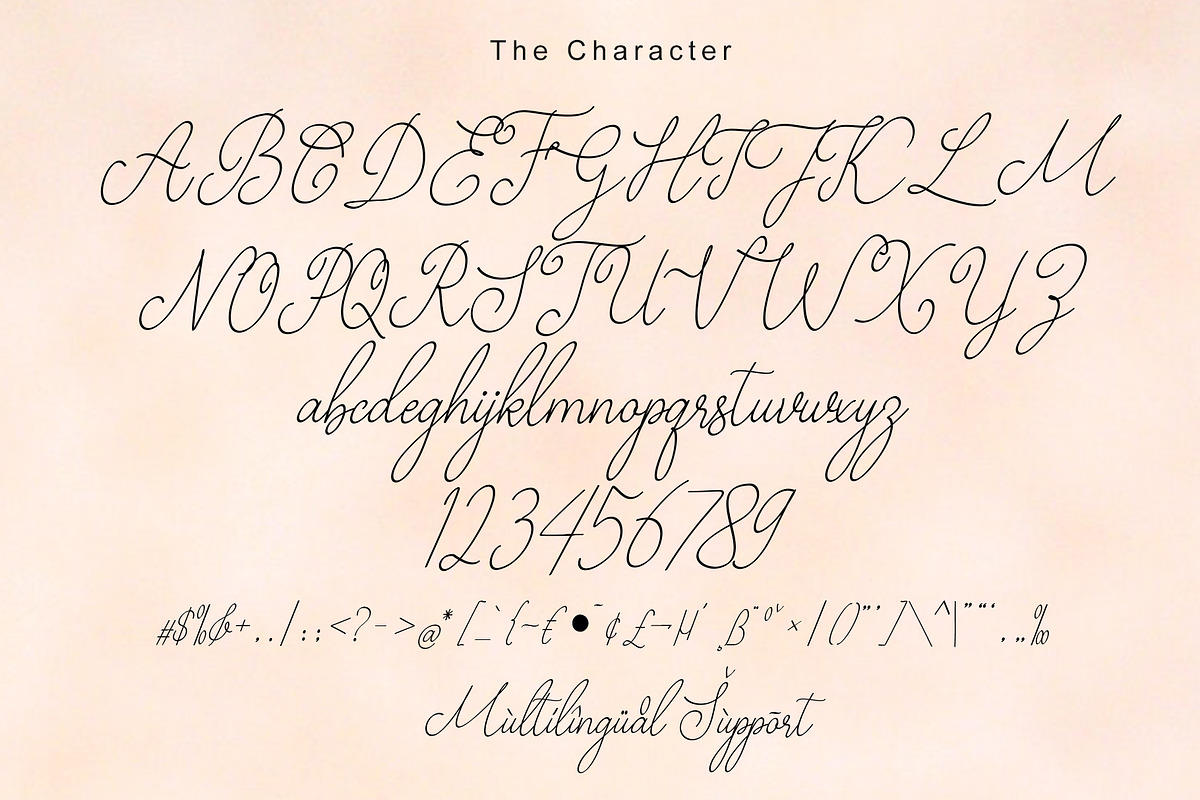 The Character
ABCDEFGHIJKLM
NOPQRSTUVWXYZ
abcdeghijklmnopqrstuvwxyz
123456789
#$%&+,./:;<?->@*[_`{~€●¯¢£¬µ´¸ß¨°ˇ×/()”’]\^|”“‘.„‰
Mùltílîngüål Šùppõrt